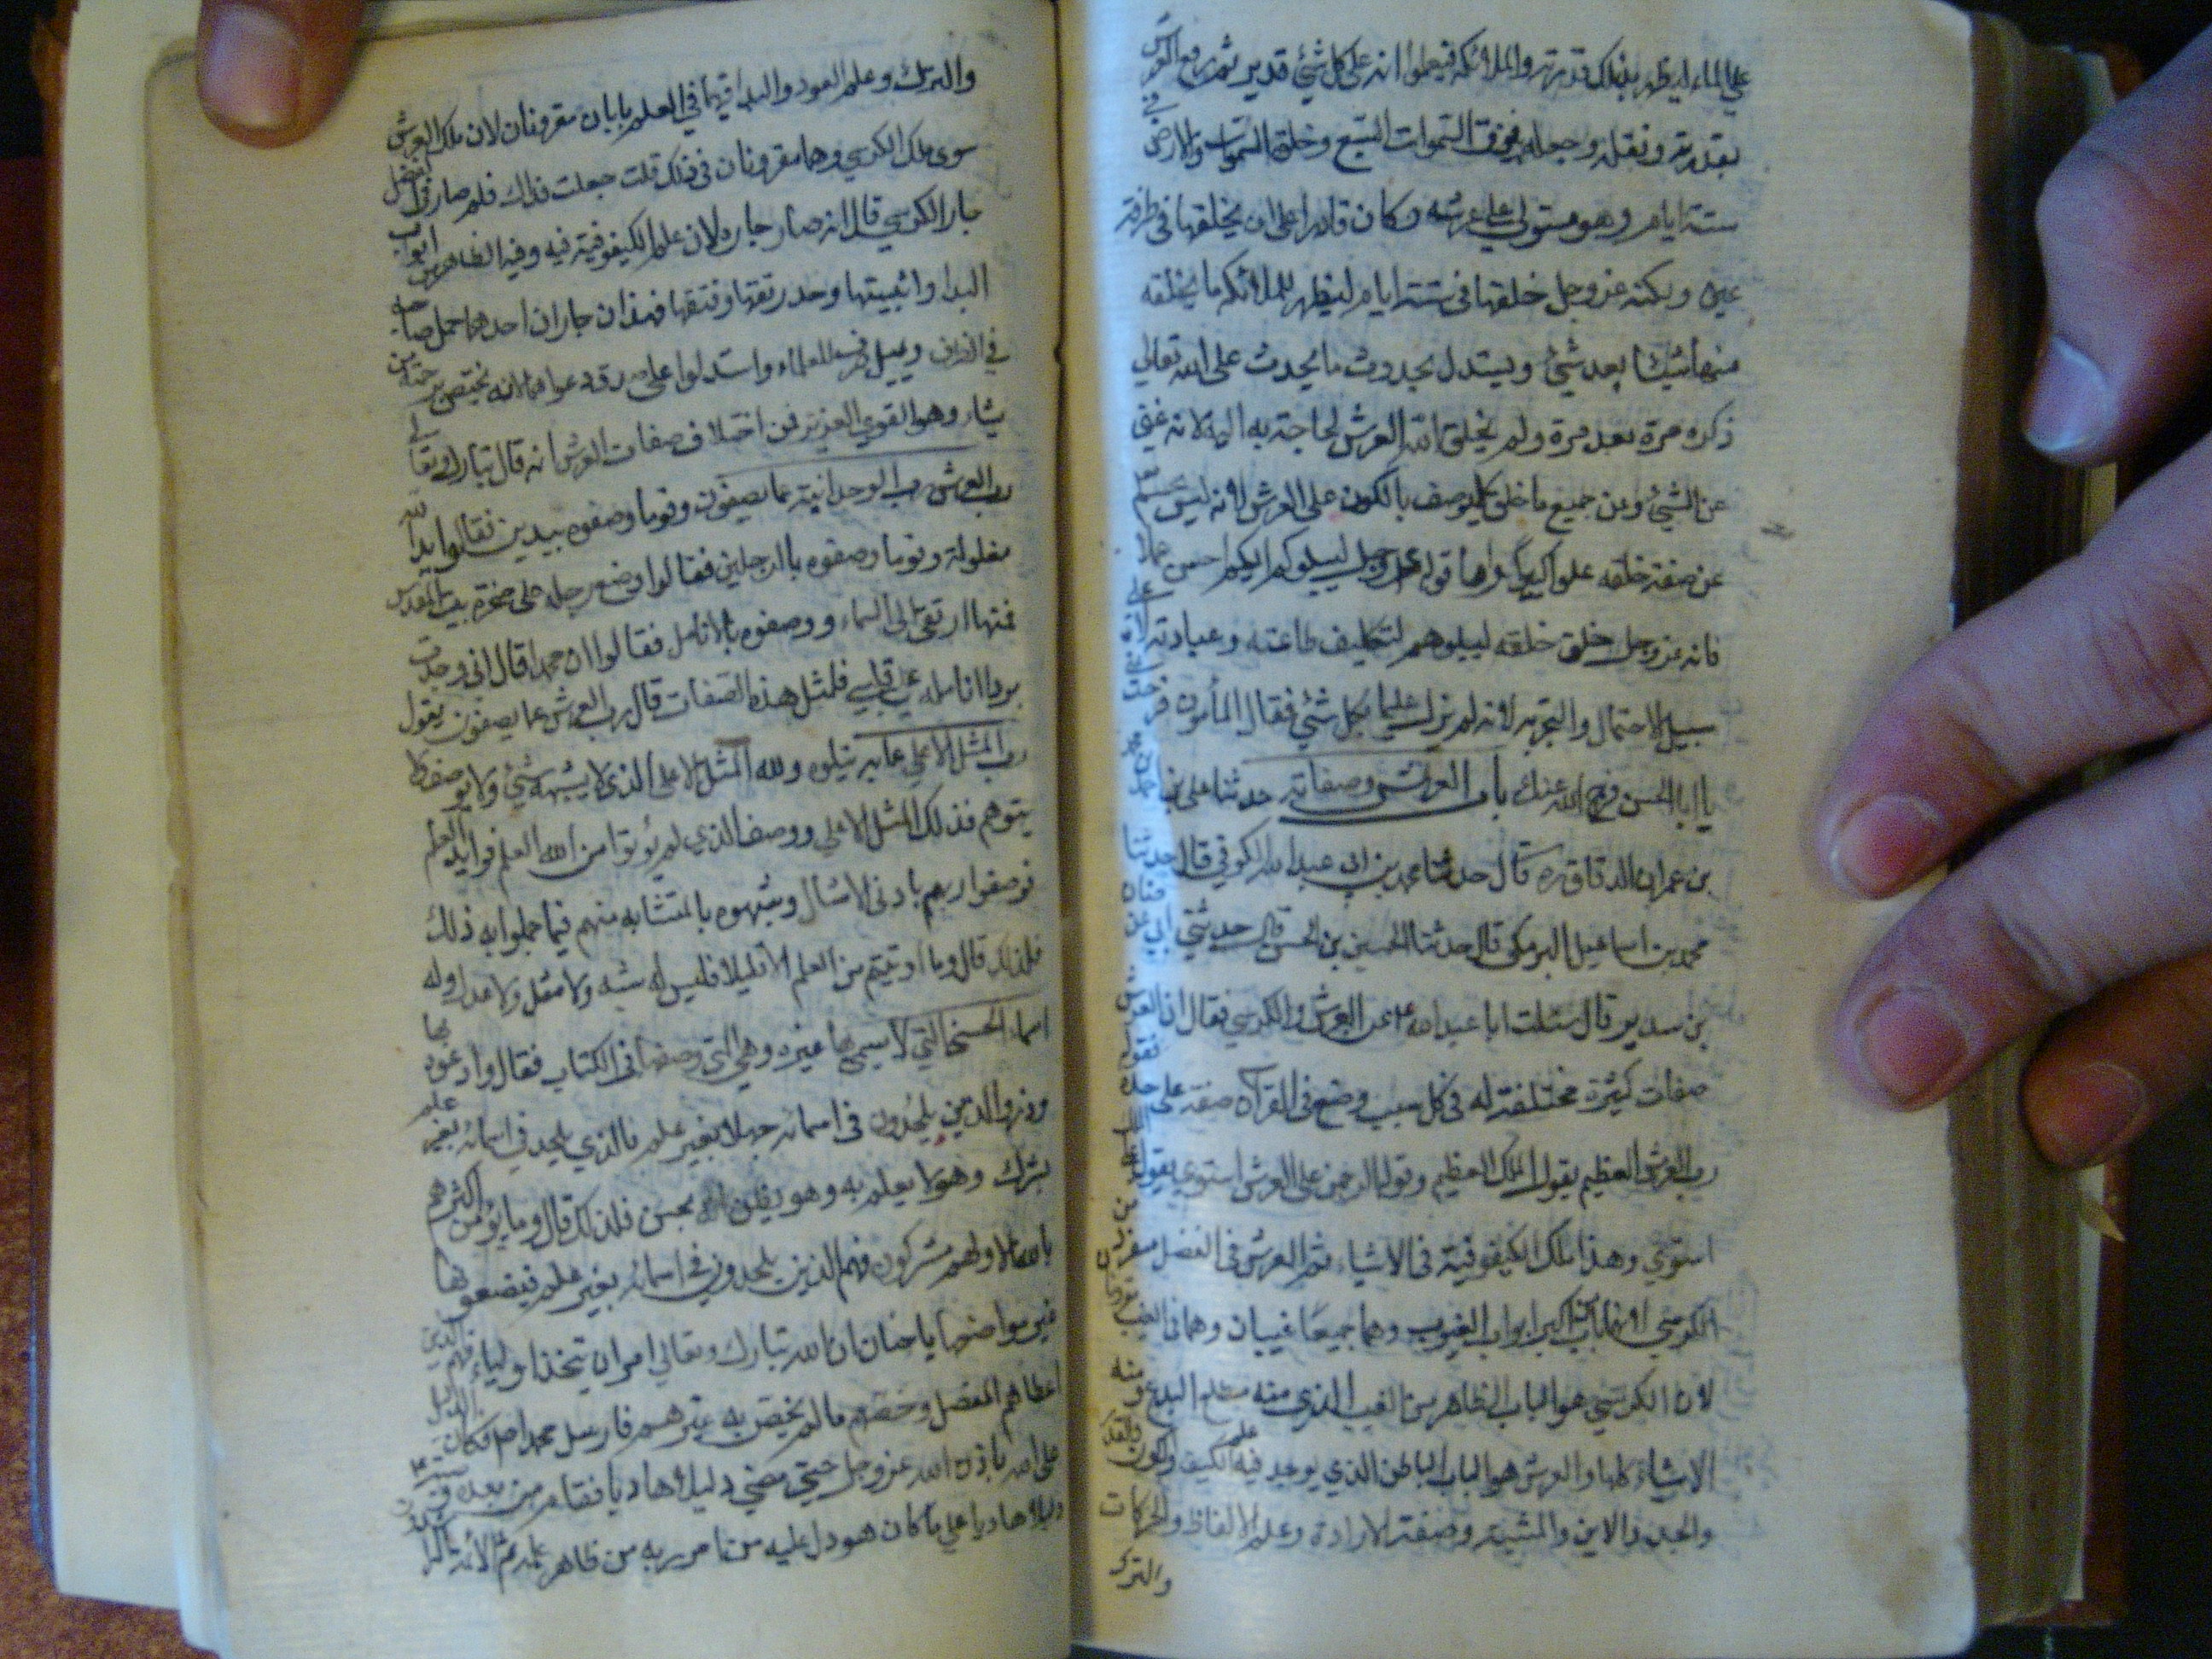 على الماء ليظهر بذلك قدرته والملائكة فيعلموا انه على كل شئ قدير ثم رفع العرش
بقدرته ونقله وجعله فوق السموات السبع وخلق السموات والارض في
ستة ايام وهو مستولي على عرشه وكان قادرا على ان يخلقها في طرفة
عين ولكنه عز وجل خلقها في ستة ايام ليظهر للملائكة ما يخلقه
منها شيئا بعد شئ ويستدل بحدوث ما يحدث على الله تعالى
ذكره مرة بعد مرة ولم يخلق الله العرش لحاجة به اليه لانه غني
عن الشئ وعن جميع ما خلق لا يوصف بالكون على العرش لانه ليس بجسم تع
عن صفة خلقه علوا كبيرا واما قوله عز وجل ليبلوكم ايكم احسن عملا
فانه عز وجل خلق خلقه ليبلوهم لتكليف طاعته وعبادته لا على
سبيل الامتحان والتجربه لانه لم يزل عليما بكل شئ فقال المأمون فرجت عني
يا ابا الحسن فرج الله عنك باب العرش وصفاته حدثنا علي بن احمد بن محمد
بن عمران الدقاق ره قال حدثنا محمد بن ابي عبد الله الكوفي قال حدثنا
محمد بن اسماعيل البرمكي قال حدثنا الحسين بن الحسن قال حدثني ابي عن حنان
بن سدير قال سئلت ابا عبد الله ع عن العرش والكرسي فقال ان للعرش
صفات كثيرة مختلفة له في كل سبب وضع في القرآن صفة على حدة فقوله
رب العرش العظيم يقول الملك العظيم وقوله الرحمن على العرش استوى يقول على الملك
استوى وهذا ملك الكيفوفية في الاشياء ثم العرش في الفصل متفرد من
الكرسي لانهما بابان من اكبر ابواب الغيوب وهما جميعا غيبان وهما في الغيب مقرونان
لان الكرسي هو الباب الظاهر من الغيب الذي منه مطلع البدع ومنه
الاشياء كلها والعرش هو الباب الباطن الذي يوجد فيه علم الكيف والكون والقدر
والحد والاين والمشية وصفة الارادة وعلم الالفاظ والحركات
والترك
والترك وعلم العود والبدا فهما في العلم بابان مقرونان لان ملك العرش
سوى ملك الكرسي وهما مقرونان في ذلك قلت جعلت فداك فلم صار في الفضل
جار الكرسي قال انه صار جاره لان علم الكيفوفية فيه وفيه الظاهر من ابواب
البدا واينيتها وحد رتقها وفتقها فهذان جاران احدهما حمل صاحبه
في الظرف ويمثل صرف العلماء واستدلوا على صدق دعواهما لانه يختص برحمته من
يشاء وهو القوي العزيز فمن اختلاف صفات العرش انه قال تبارك وتعالى
رب العرش رب الوحدانية عما يصفون وقوما وصفوه بيدين فقالوا يد الله
مغلولة وقوما وصفوه بالرجلين فقالوا وضع رجله على صخرة بيت المقدس
فمنها ارتقى الى السماء ووصفوه بالانامل فقالوا ان محمدا قال اني وجدت
برد انامله على قلبي فلمثل هذه الصفات قال رب العرش عما يصفون يقول
رب المثل الاعلى عما به مثلوه ولله المثل الاعلى الذي لا يشبهه شئ ولا يوصف ولا
يتوهم فذلك المثل الاعلى ووصف الذي لم يؤتوا من الله العلم فوايد العلم
فوصفوا ربهم بادنى الامثال وشبهوه بالمتشابه منهم فيما جهلوا به ذلك
فلذلك قال وما اوتيتم من العلم الا قليلا فليس له شبه ولا مثل ولا عدل وله
اسماء الحسنى التي لا يسمى بها غيره وهي التي وصفها في الكتاب فقال وادعوه بها
وذروا الذين يلحدون في اسمائه جهلا بغير علم فالذي يلحد في اسمائه بغير علم
يشرك وهو لا يعلم به وهو يظن انه يحسن فلذلك قال وما يؤمن اكثرهم
بالله الا وهم مشركون فهم الذين يلحدون في اسمائه بغير علم فيضعونها
غير مواضعها يا حنان ان الله تبارك وتعالى امر ان يتخذ اولياء فهم الذين
اعطاهم الفضل وخصهم ما لم يخص به غيرهم فارسل محمدا ص فكان الدليل
على الله باذن الله عز وجل حتى مضى دليلا هاديا فقام من بعده وصيه ع
دليلا هاديا على ما كان هو دل عليه من امر ربه من ظاهر علمه ثم الائمة الراشدون